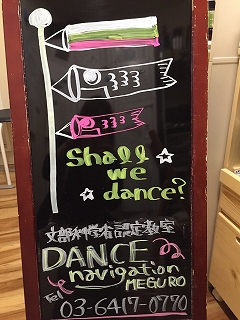 Shall
we
dance?
文部科学省認定教室
DANCE
navigation
MEGURO
Tel
03-6417-0770